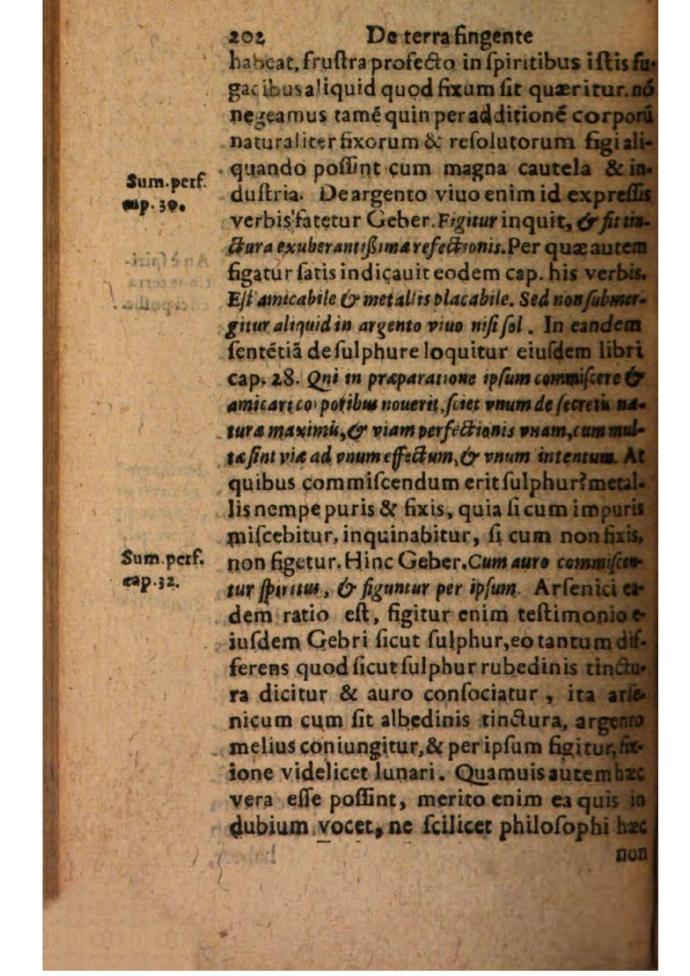 202 De terra fingente
habeat, frustra profecto in spiritibus istis fu-
gacibus aliquid quod fixum sit quæritur. nō
negeamus tamé quin per additioné corporū
naturaliter fixorum & resolutorum figi ali-
quando possint cum magna cautela & in-
Sum. perf.
cap. 30.
dustria. De argento viuo enim id expressis
verbis fatetur Geber. Figitur inquit, & fit tin-
ctura exuberantißima refectionis. Per quæ autem
figatur satis indicauit eodem cap. his verbis.
Est amicabile & metallis placabile. Sed non submer-
gitur aliquid in argento viuo nisi sol. In eandem
sentétiā de sulphure loquitur eiusdem libri
cap. 28. Qni in præparatione ipsum commiscere &
amicari corporibus nouerit, sciet vnum de secretis na-
turæ maximū, & viam perfectionis vnam, cum mul-
tæ sint viæ ad vnum effectum, & vnum intentum. At
quibus commiscendum erit sulphur? metal-
lis nempe puris & fixis, quia si cum impuris
miscebitur, inquinabitur, si cum non fixis,
Sum. perf.
cap. 32.
non figetur. Hinc Geber. Cum auro commiscen-
tur spiritus, & figuntur per ipsum. Arsenici ea-
dem ratio est, figitur enim testimonio e-
iusdem Gebri sicut sulphur, eo tantum dif-
ferens quod sicut sulphur rubedinis tinctu-
ra dicitur & auro consociatur, ita arse-
nicum cum sit albedinis tinctura, argento
melius coniungitur, & per ipsum figitur, fix-
ione videlicet lunari. Quamuis autem hæc
vera esse possint, merito enim ea quis in
dubium vocet, ne scilicet philosophi hæc
non